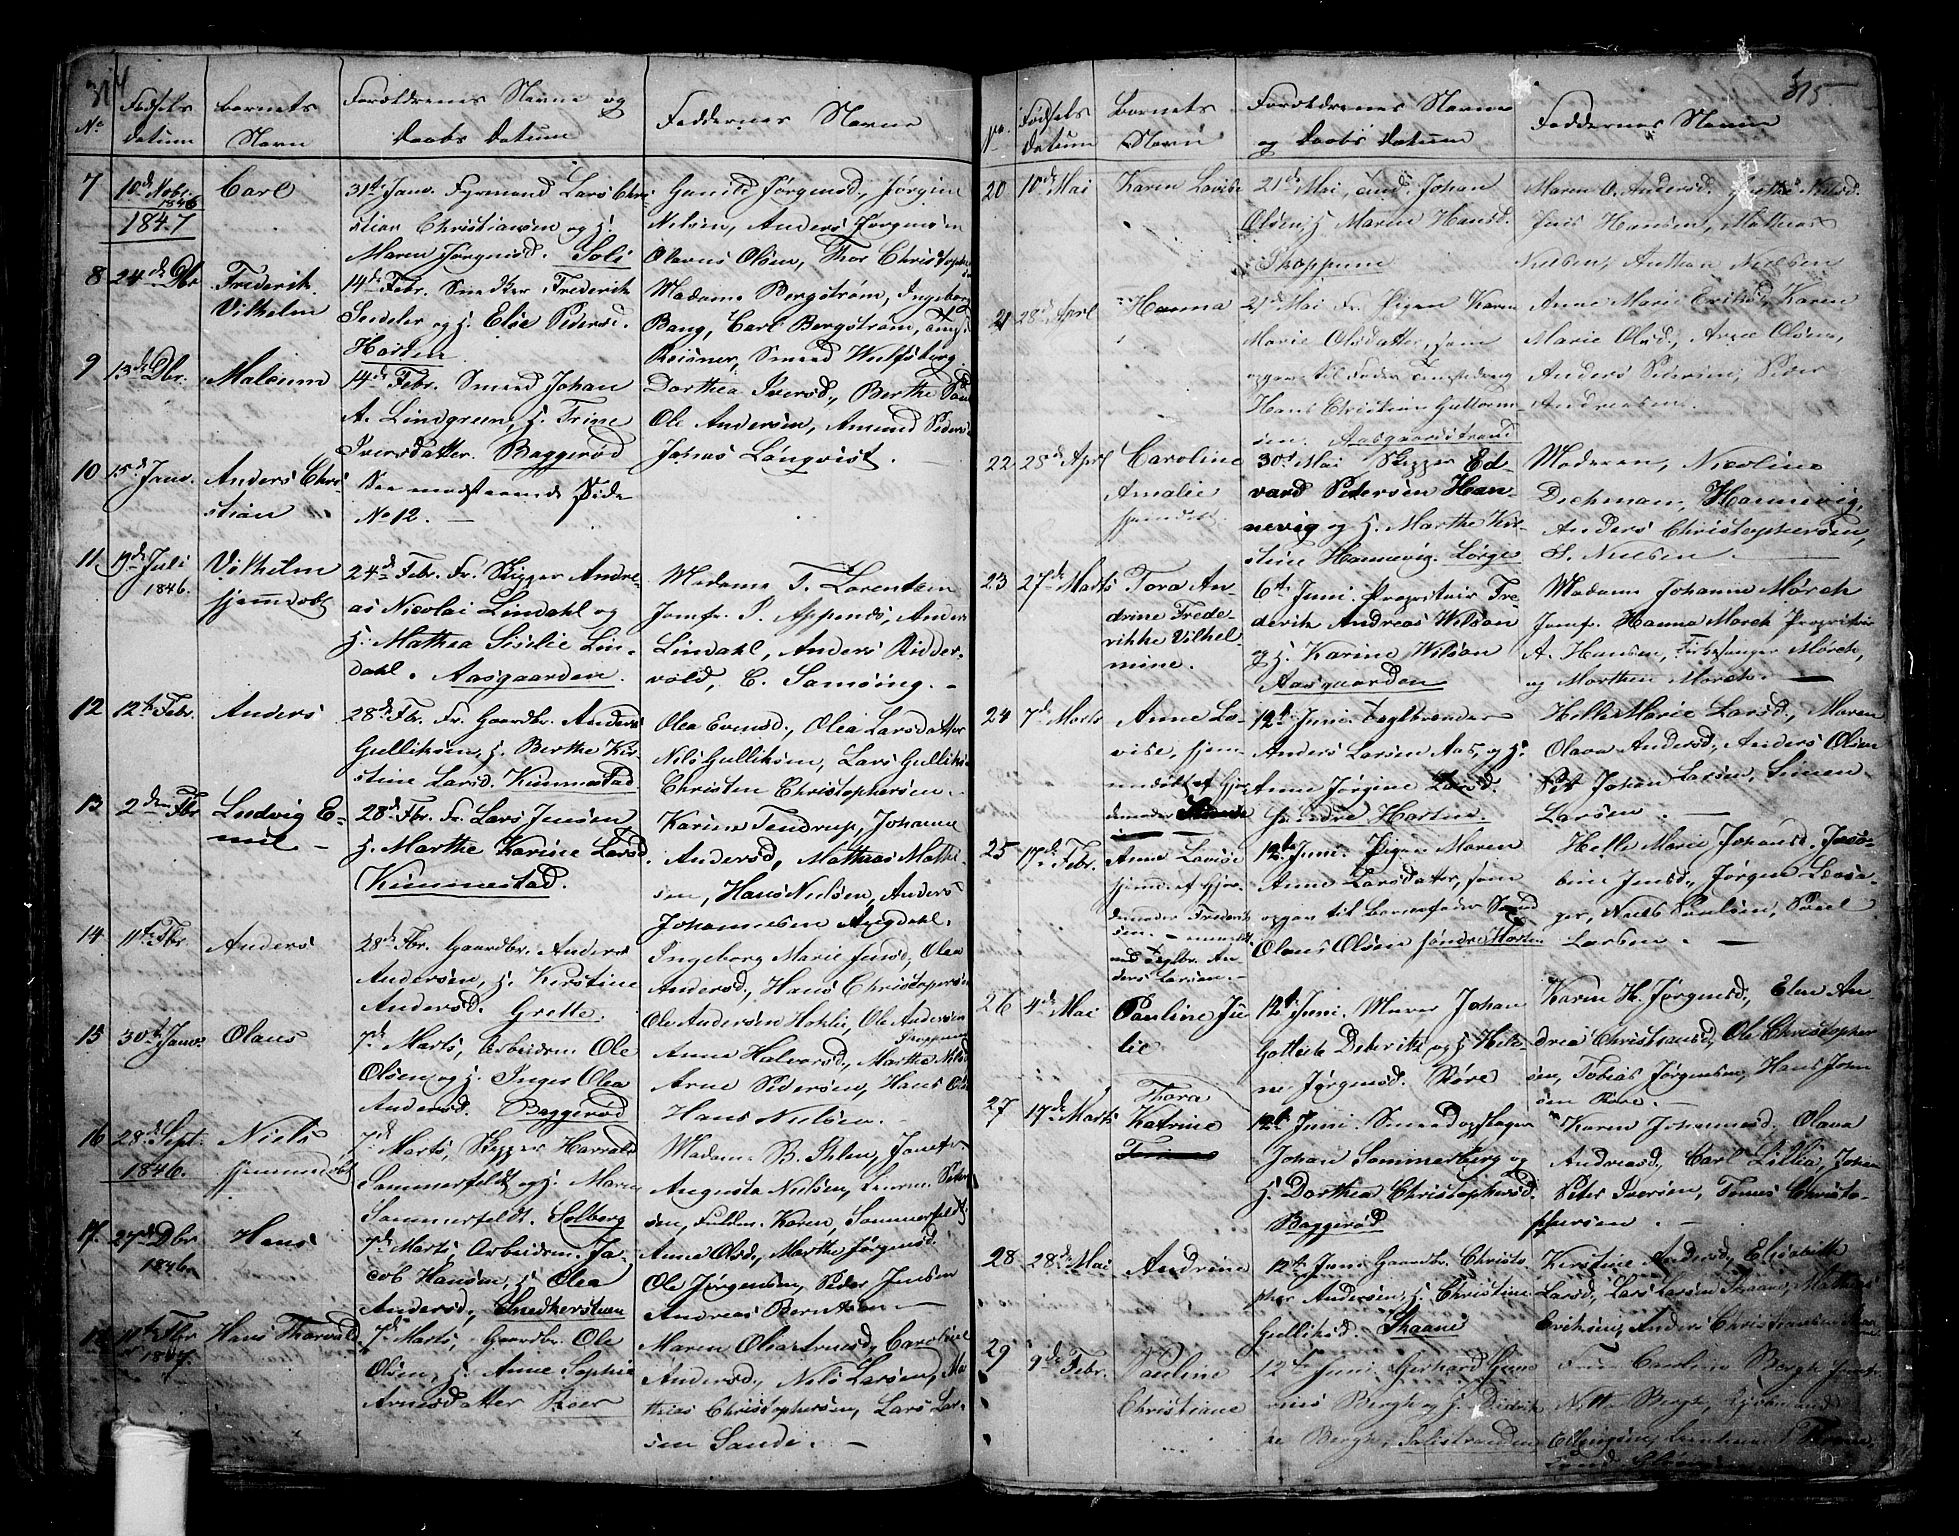 314
No
Fødsels
datum
Barnets
Navn
Forældrenes Navne og
Daabs Datum
Faddernes Navne
7
10de Novbr
1846
1847
Carl
31te Janv. Fyrmand Lars Chri-
stian Christiansen og H.
Maren Jørgensd. Soli
Jørgensd, Jørgine
Nilsen, Anders Jørgensen
Olavus Olsen, Thor Christophersen
8
24de Dbr
Frederik
Vilhelm
14de Febr. Snedker Frederik
Seideler og H. Elise Pedersd.
Horten
Madame Bergstrøm, Ingeborg
Bang, Carl Bergstrøm,
Reisner, Smed Wulfsberg
9
13de Dbr.
14de Febr. Smed Johan
A. Lindgreen, H. Trine
Iversdatter. Baggerød
Dorthea Iversd., Berthe
Ole Andersen, Amund Peders
Johnas Lønqvist.
10
15de Janv.
Anders Chri-
stian
See modstaaende Side
No 12.
11
9de Juli
1846.
Vilhelm
hjemmdøbt
24de Febr. Fr. Skipper Andre-
as Nicolai Lindahl og
H. Mathea Sisilie Lin-
dahl. Aasgaarden.
Madame T. Lorentzen
Jomfr. P. Appenæs, Anders
Lindahl, Anders Ridder-
vold, C. Samsing.
12
12te Febr.
Anders
28de Fbr. Fr. Gaardbr. Anders
Gulliksen, H. Berthe Kir-
stine Larsd. Kimmestad
Olea Evensd., Olea Larsdatter
Nils Gulliksen, Lars Gulliks
Christen Christophersen.
13
2den Fbr
Ludvig E-
mil
28de Fbr. Fr. Lars Jensen
H. Marthe Karine Larsd.
Kimmestad.
Karine Tendrup, Johanne
Andersd, Mathias Mathi-
sen, Hans Nielsen, Anders
Johannesen Augdahl.
14
11te Fbr
Anders
28de Fbr. Gaardbr. Anders
Andersen, H. Kirstine
Andersd. Grette.
Ingeborg Marie Jensd, Olea
Andersd., Hans Christophersen
Ole Andersen Hokli, Ole Andersen
Skoppum
15
30te Janv.
Olaus
7de Marts, Arbeidsm. Ole
Olsen og H. Inger Olea
Andersd. Baggerød
Anne Halversd, Marthe Nilsd
Arne Pedersen, Hans Ols
Hans Nielsen.
16
28de Sept.
1846.
Niels
hjemmdøbt
7de Marts, Skipper Harvald
Sommerfeldt og H. Maren
Sommerfeldt. Solberg
Madame B. Ihlen, Jomfr
Augusta Nielsen, Peter
sen, Karen Sommerfeldt
17.
27de Dbr
1846
Hans
7de Marts, Arbeidsm. Ja-
cob Hansen, H. Olea
Andersd, Snedkerstuen
Anne Olsd., Marthe Jørgensd.
Ole Jørgensen, Peder Jensen
Andreas Berntsen
11te Fbr
1847.
Hans Thorvald
7de Marts, Gaardbr. Ole
Olsen, H. Anne Sophie
Arnesdatter Roer
Maren Olea Arnesd, Caroline
Andersd, Nils Larsen, Ma-
thias Christophersen, Lars Lar-
sen Sande.
315
No.
Fødsels
Datum
Barnets
Navn
Forældrenes Navne
og Daabs Datum
Faddernes Navne
20
10de Mai
Karen Lovise
21de Mai, Johan
Olsen, H. Maren Hansd.
Skoppum
Maren O. Andersd. Grethe Nilsd.
Jens Hansen, Mathias
Nielsen, Anthon Nielsen
21
28de Aprl
Hanna
21de Mai Fr. Pigen Karen
Marie Olsdatter, som
opgav til Fader
Hans Christian Guttorm-
sen. Aasgaardstrand
Anne Marie Eriksd, Karen
Marie Olsd, Arne Olsen,
Anders Peder
Andreasen.
22
25de Aprl
Caroline
Amalie
30te Mai Skipper Ed
vard Pedersen Han-
nevig og H. Marthe Kir-
stine Hannevig. Lørge
Moderen, Nicoline
Dichman, Hannevig,
Anders Christophersen,
S. Nielsen.
23
27de Marts
Tora An-
drine Frede-
rikke Vilhel
mine.
6te Juni. Proprietair Fre-
derik Andreas Wilson
og H. Karine Wilson
Aasgaarden
Madame Johanne Mørch
Jomfr. Hanna Mørch Proprietair
A. Hansen, Mørch,
og Morthen Mørch.
24
7de Marts
Anne Lo-
vise, hjem-
mdøbt af Gjor-
demoder
12te Juni. Teglbrænder
Anders Larsen Aas, og H.
Anne Jørgine Larsd.
Søndre Horten.
Helle Marie Larsd., Maren
Olava Andersd, Anders Olsen
Johan Larsen, Simen
Larsen.
25
17de Febr.
Anne Lovise
hjemd. af Gjor-
demoder Frederik
sen.
med Teglbr. An-
ders Larsen.
12te Juni. Pigen Maren
Anne Larsdatter, som
opgav til Barnefader Smed
Olaus Olsen Søndre Horten
Helle Marie Johansd. Jaco-
bine Jensd., Jørgen
ger, Niels Poulsen, Poul
Larsen.
26
4de Mai
Pauline Ju
lie
12te Juni. Murer Johan
Gotlieb Dideritz og H. Hele-
ne Jørgensd. Røre
Karen H. Jørgensd, Elen An-
drea Christiansd, Ole Christopher
sen, Tobias Jørgensen, Hans John
sen Røre.
27
17de Marts
Thora
Katrine
12te Juni Smed og Skaper
Johan Sommerberg og
H. Dorthea Christophersd.
Baggerød
Karen Johannesd. Olava
Andreasd, Carl Lillia, Johan
Peter Iversen, Tønnes Christo-
phersen.
28
28de Mai
Andrine
12te Juni Gaardbr. Christo-
pher Andersen, H. Christine
Gulliksd. Skaane
Kirstine Andersd, Elisabeth
Larsd, Lars Larsen Skaane, Mathias
Eriksen, Anders Christiansen
29
9de Febr.
Pauline
Christiane
12te Juni Gerhard
Bergh og H.
Bergh, Falkstranden
Fru Caroline Bergh
Nitte Bergh,